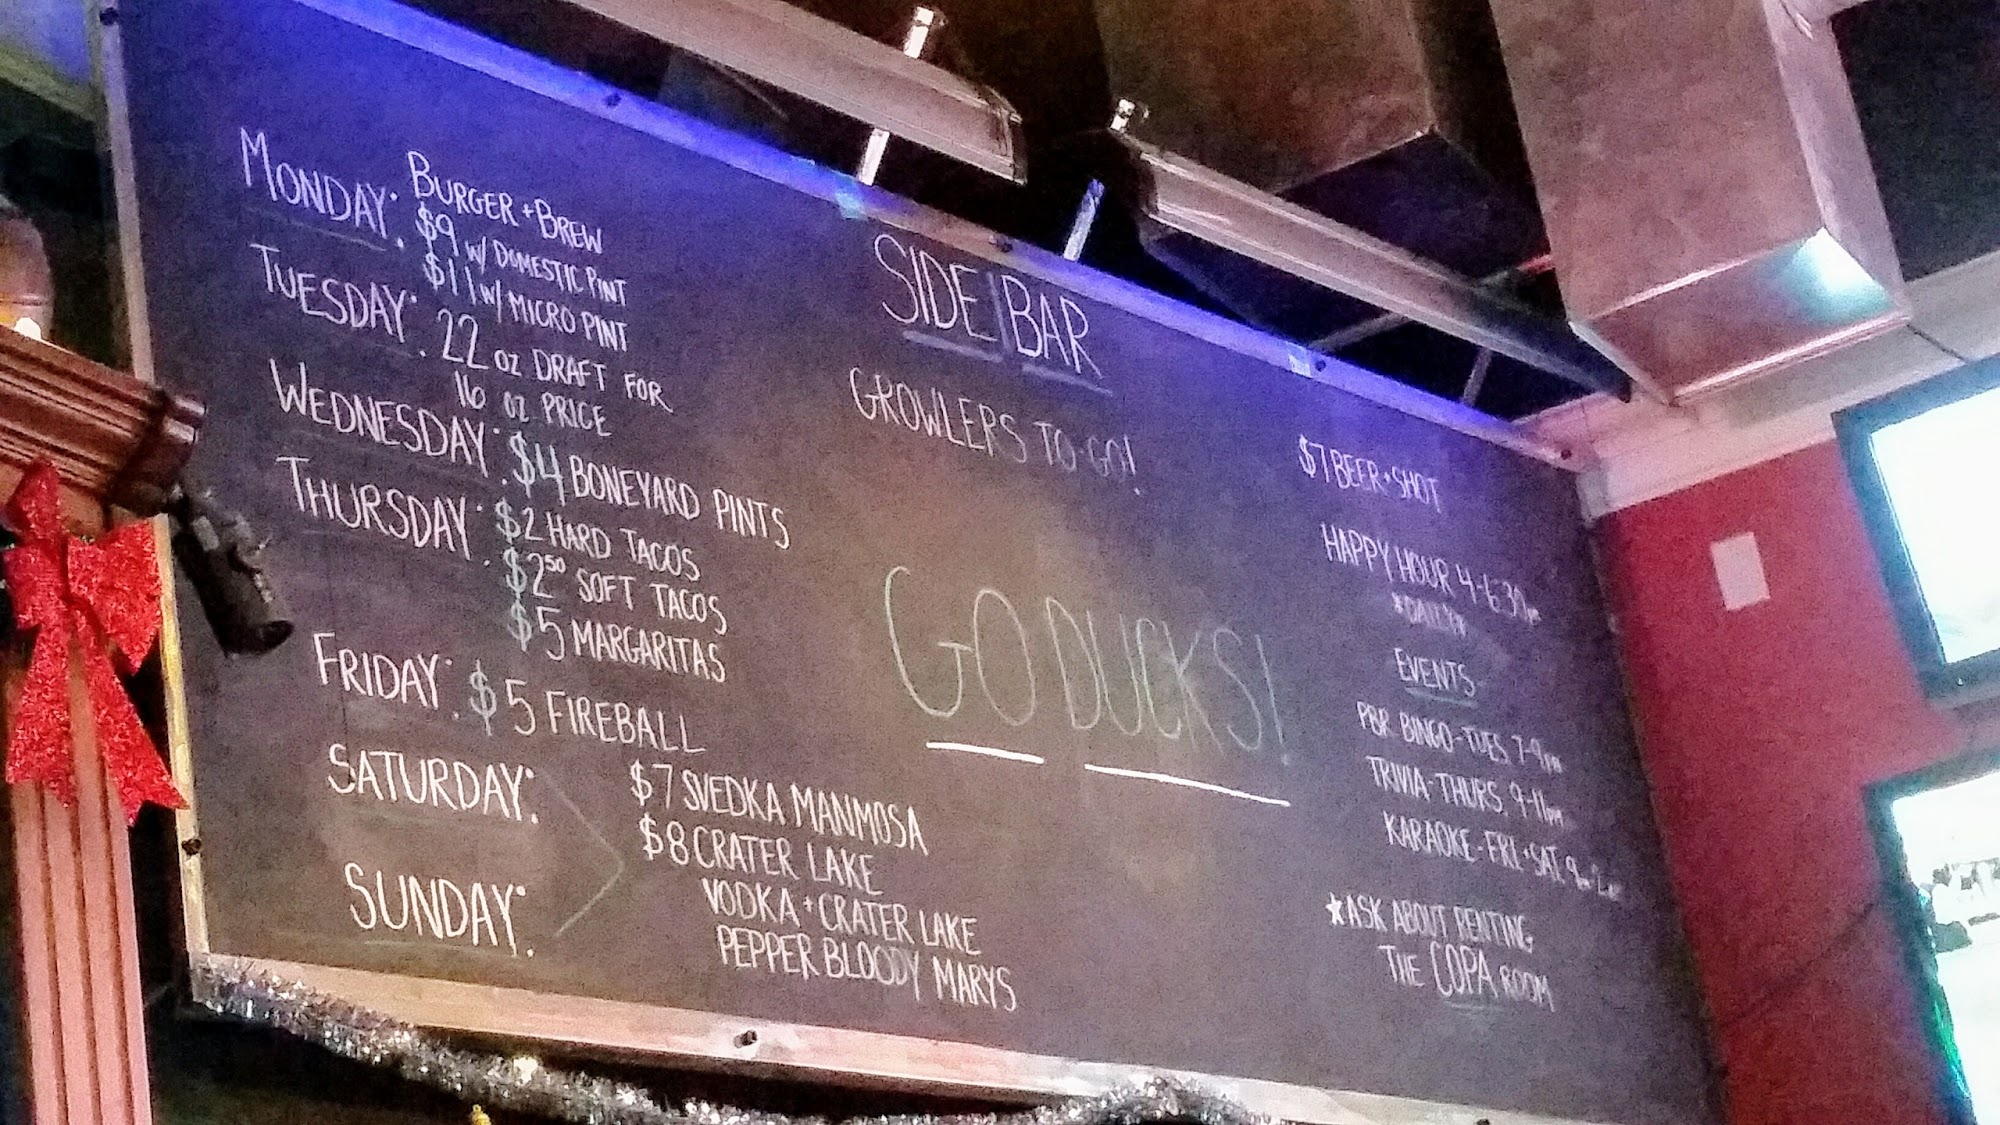 MONDAY: BURGER + BREW
$9 W/ DOMESTIC PINT
$11 W/ MICRO PINT
TUESDAY: 22 OZ DRAFT FOR
16 OZ PRICE
WEDNESDAY: $4 BONEYARD PINTS
THURSDAY: $2 HARD TACOS
$2.50 SOFT TACOS
$5 MARGARITAS
FRIDAY: $5 FIREBALL
SATURDAY:
SUNDAY:
$7 SVEDKA MANMOSA
$8 CRATER LAKE
VODKA + CRATER LAKE
PEPPER BLOODY MARYS
SIDE|BAR
GROWLERS TO-GO!
GO DUCKS!
$7 BEER + SHOT
HAPPY HOUR 4-6:30PM
*DAILY*
EVENTS
PBR BINGO - TUES. 7-9PM
TRIVIA - THURS. 9-11PM
KARAOKE - FRI. + SAT. 9PM-2AM
★ASK ABOUT RENTING
THE COPA ROOM